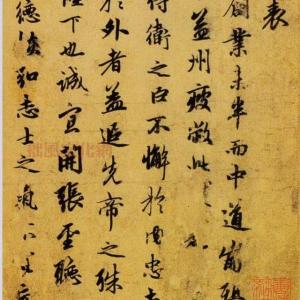 表
創業未半而中道崩
益州疲敝此
侍衛之臣不懈於内忠志
於外者蓋追先帝之殊
陛下也誠宜開張聖聽
德恢弘志士之氣不宜
拙風文化網